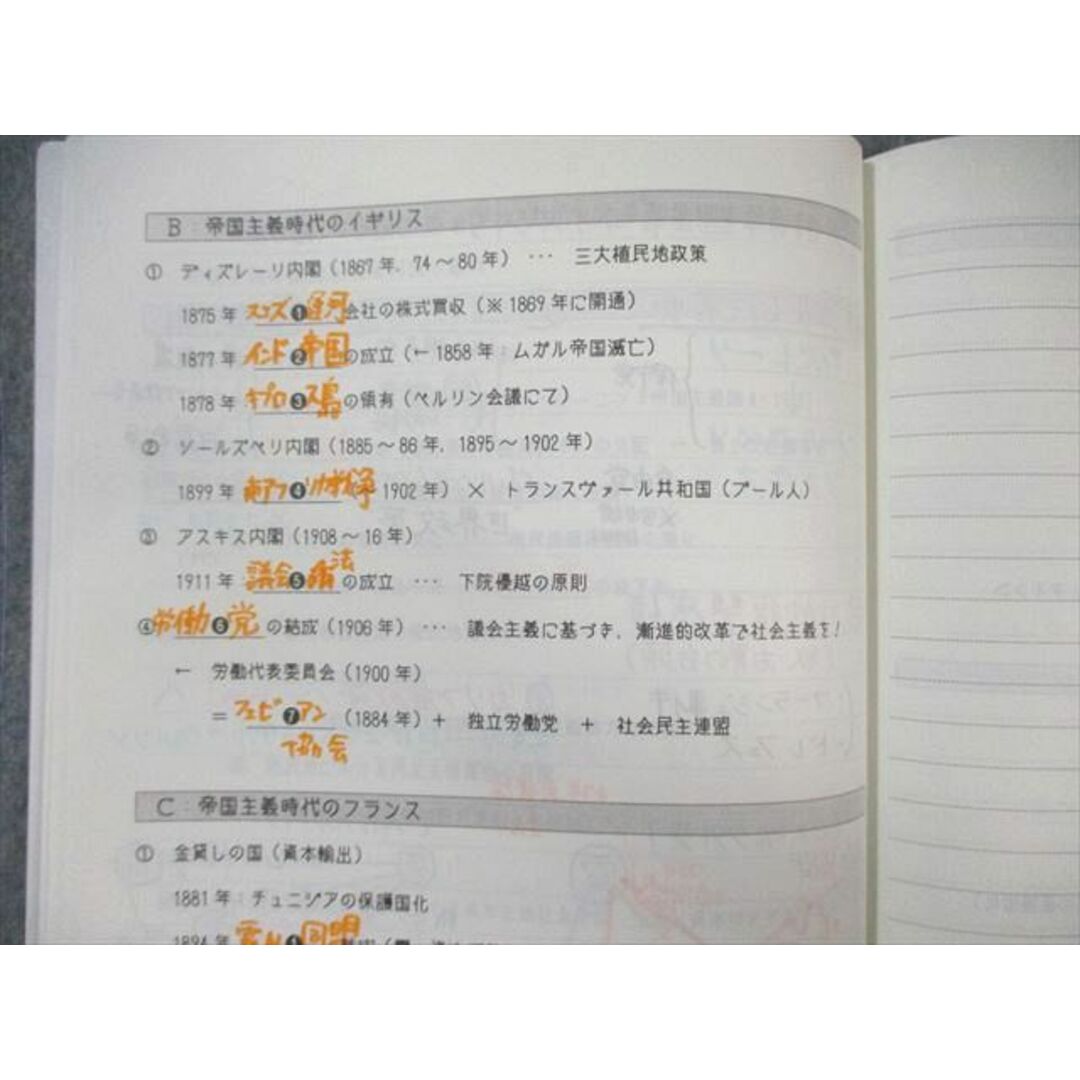 B：帝国主義時代のイギリス
① ディズレーリ内閣（1867年，74～80年） … 三大植民地政策
1875年 スエズ❶運河会社の株式買収（※1869年に開通）
1877年 インド❷帝国の成立（←1858年：ムガル帝国滅亡）
1878年 キプロ❸ス島の領有（ベルリン会議にて）
② ソールズベリ内閣（1885～86年，1895～1902年）
1899年 南アフ❹リカ戦争（～1902年）× トランスヴァール共和国（ブール人）
③ アスキス内閣（1908～16年）
1911年 議会❺法の成立 … 下院優越の原則
④労働❻党の結成（1906年） … 議会主義に基づき，漸進的改革で社会主義を！
← 労働代表委員会（1900年）
＝フェビ❼アン協会（1884年）＋ 独立労働党 ＋ 社会民主連盟
C：帝国主義時代のフランス
① 金貸しの国（資本輸出）
1881年：チュニジアの保護国化
1894年 露仏❶同盟